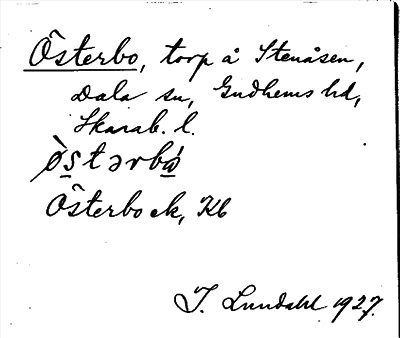 Österbo, torp å Stenåsen,
Dala sn, Gudhems hd,
Skarab. l.
ö̀stərbó
Österbo ek, Kb
I. Lundahl 1927.